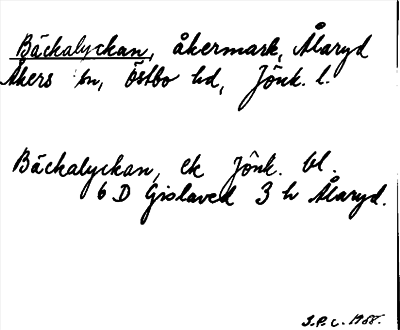 Bäckalyckan, åkermark, Ålaryd
Åkers sn, Östbo hd, Jönk. l.
Bäckalyckan, ek Jönk. bl.
6 D Gislaved 3 h Ålaryd.